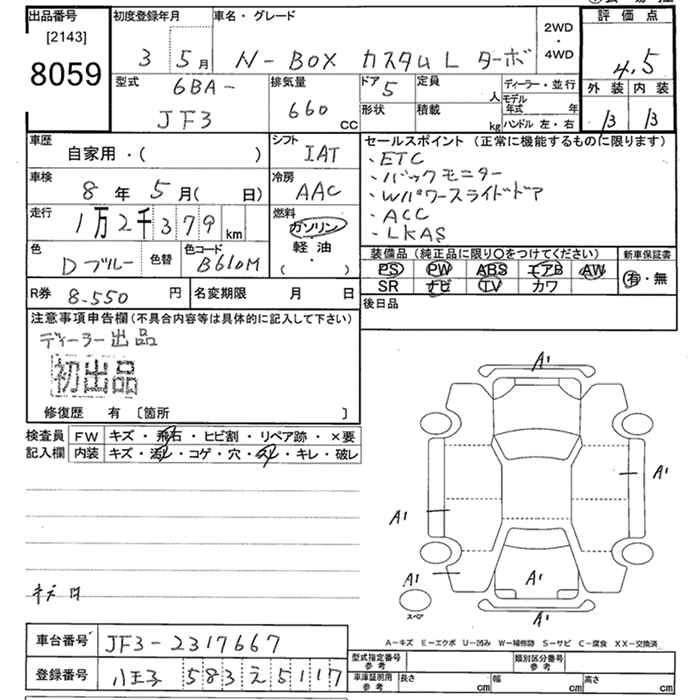 出品番号 初度登録年月 車名・グレード 評価点
[2143]
8059
3 5月 N-BOX カスタムL ターボ 2WD・4WD 4.5
型式 6BA- 排気量 ドア 5 定員 人 ディーラー・並行 外装 内装
JF3 660 cc 形状 積載 kg モデル年式 年 B B
ハンドル 左・右
車歴 自家用・( ) シフト IAT セールスポイント (正常に機能するものに限ります)
・ETC
・バックモニター
・Wパワースライドドア
・ACC
・LKAS
車検 8年 5月( 日) 冷房 AAC
走行 1万2千379km 燃料 ガソリン 軽油 ( ・ )
色 Dブルー 色替 色コード B610M
装備品 (純正品に限り○をつけてください) 新車保証書
PS PW ABS エアB AW 有・無
SR ナビ TV カワ
R券 8-550円 名変期限 月 日 後日品
注意事項申告欄(不具合内容等は具体的に記入して下さい)
ディーラー出品
初出品
修復歴 有 [箇所 ]
検査員 FW キズ・飛石・ヒビ割・リペア跡・×要
記入欄 内装 キズ・汚れ・コゲ・穴・スレ・キレ・破レ
A1
A1
A1
A1
A1
A1
スペア
A-キズ E-エクボ U-凹み W-補修跡 S-サビ C-腐食 XX-交換済
車台番号 JF3-2317667
型式指定番号 参考 類別区分番号 参考
登録番号 八王子 583 え 5117
車庫証明用 参考 長さ cm 幅 cm 高さ cm